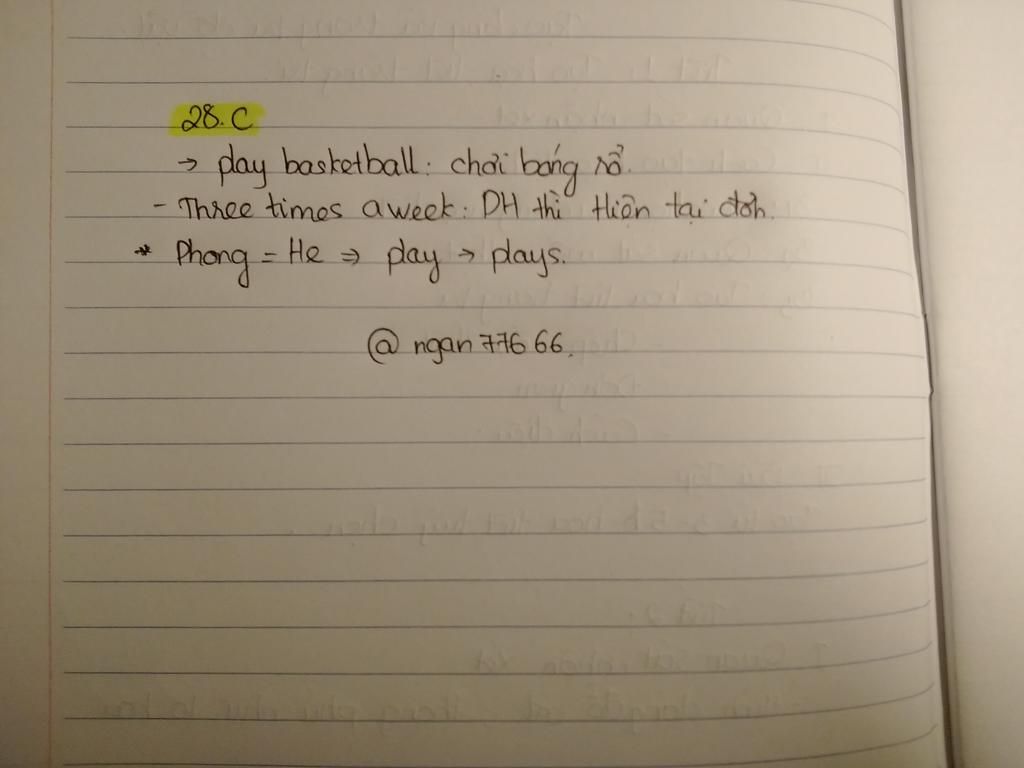 28. C
→ play basketball: chơi bóng rổ.
- Three times a week: DH thì Hiện tại đơn.
* Phong = He ⇒ play → plays.
@ngan77666.